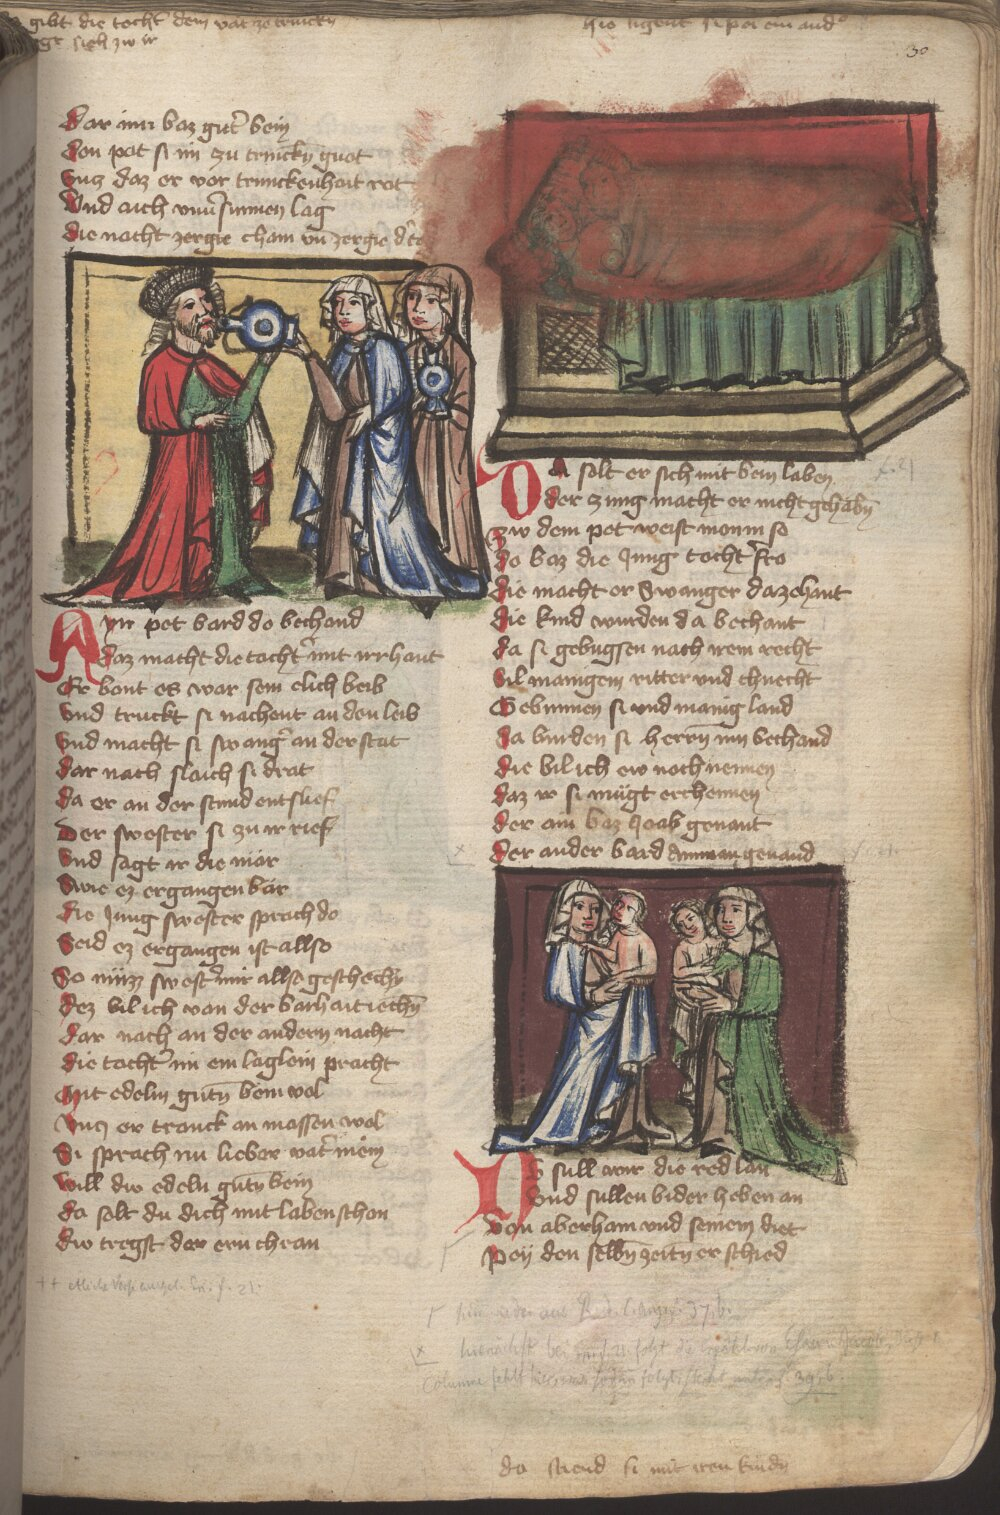 gibt die tocht dem vat ze trinckn
sich zw ir
hie ligent si pei ein and
30
Dar inn baz gut bein
Den pot si im zu trincky guot
Vncz daz er vor trunckenhait rot
Vnd auch vnusinnen lag
Die nacht zergie cham vn zergie d
Ayn pet bard do bechand
daz macht die tocht mit irr hant
Er bont es war sein elich beib
Vnd truckt si nachent an den leib
Vnd macht si swang an der stat
Dar nach slaich si drat
Da er an der stund entslief
Der swester si zu ir rief
Vnd sagt ir die mär
Swie ez ergangen bär
Die Jung swester sprach do
Seid ez ergangen ist allso
So müzz swest mir allso geschechn
Dez bil ich von der barhait iechn
Dar nach an der andern nacht
Die tocht im ein laglein pracht
Mit edelm gutn bein vol
Vncz er tranck an massen wol
Si sprach nu lieber vat mein
Will div edeln gutn bein
Da solt du dich mit laben schon
Div tregst der ern chron
Da solt er sich mit bein laben
Der Jung macht er nicht gehabn
Zw dem pet weist mon in so
Do baz die Jung tocht fro
Die macht er Swanger dazehant
Die kind wurden da bechant
Da si gebugsen nach irem recht
Vil manigem ritter vnd chnecht
Gebunnen si vnd manig land
Da burden si herrn inn bechand
Die bil ich ew noch nennen
Daz ir si mügt erchennen
Der ain baz Moab genant
Der ander bard Ammon genand
Nv süll wir die red lan
Vnd süllen bider heben an
Von aberham vnd seinem diet
Pey den selbn zeitn er schied
da stend si mit iren kindn